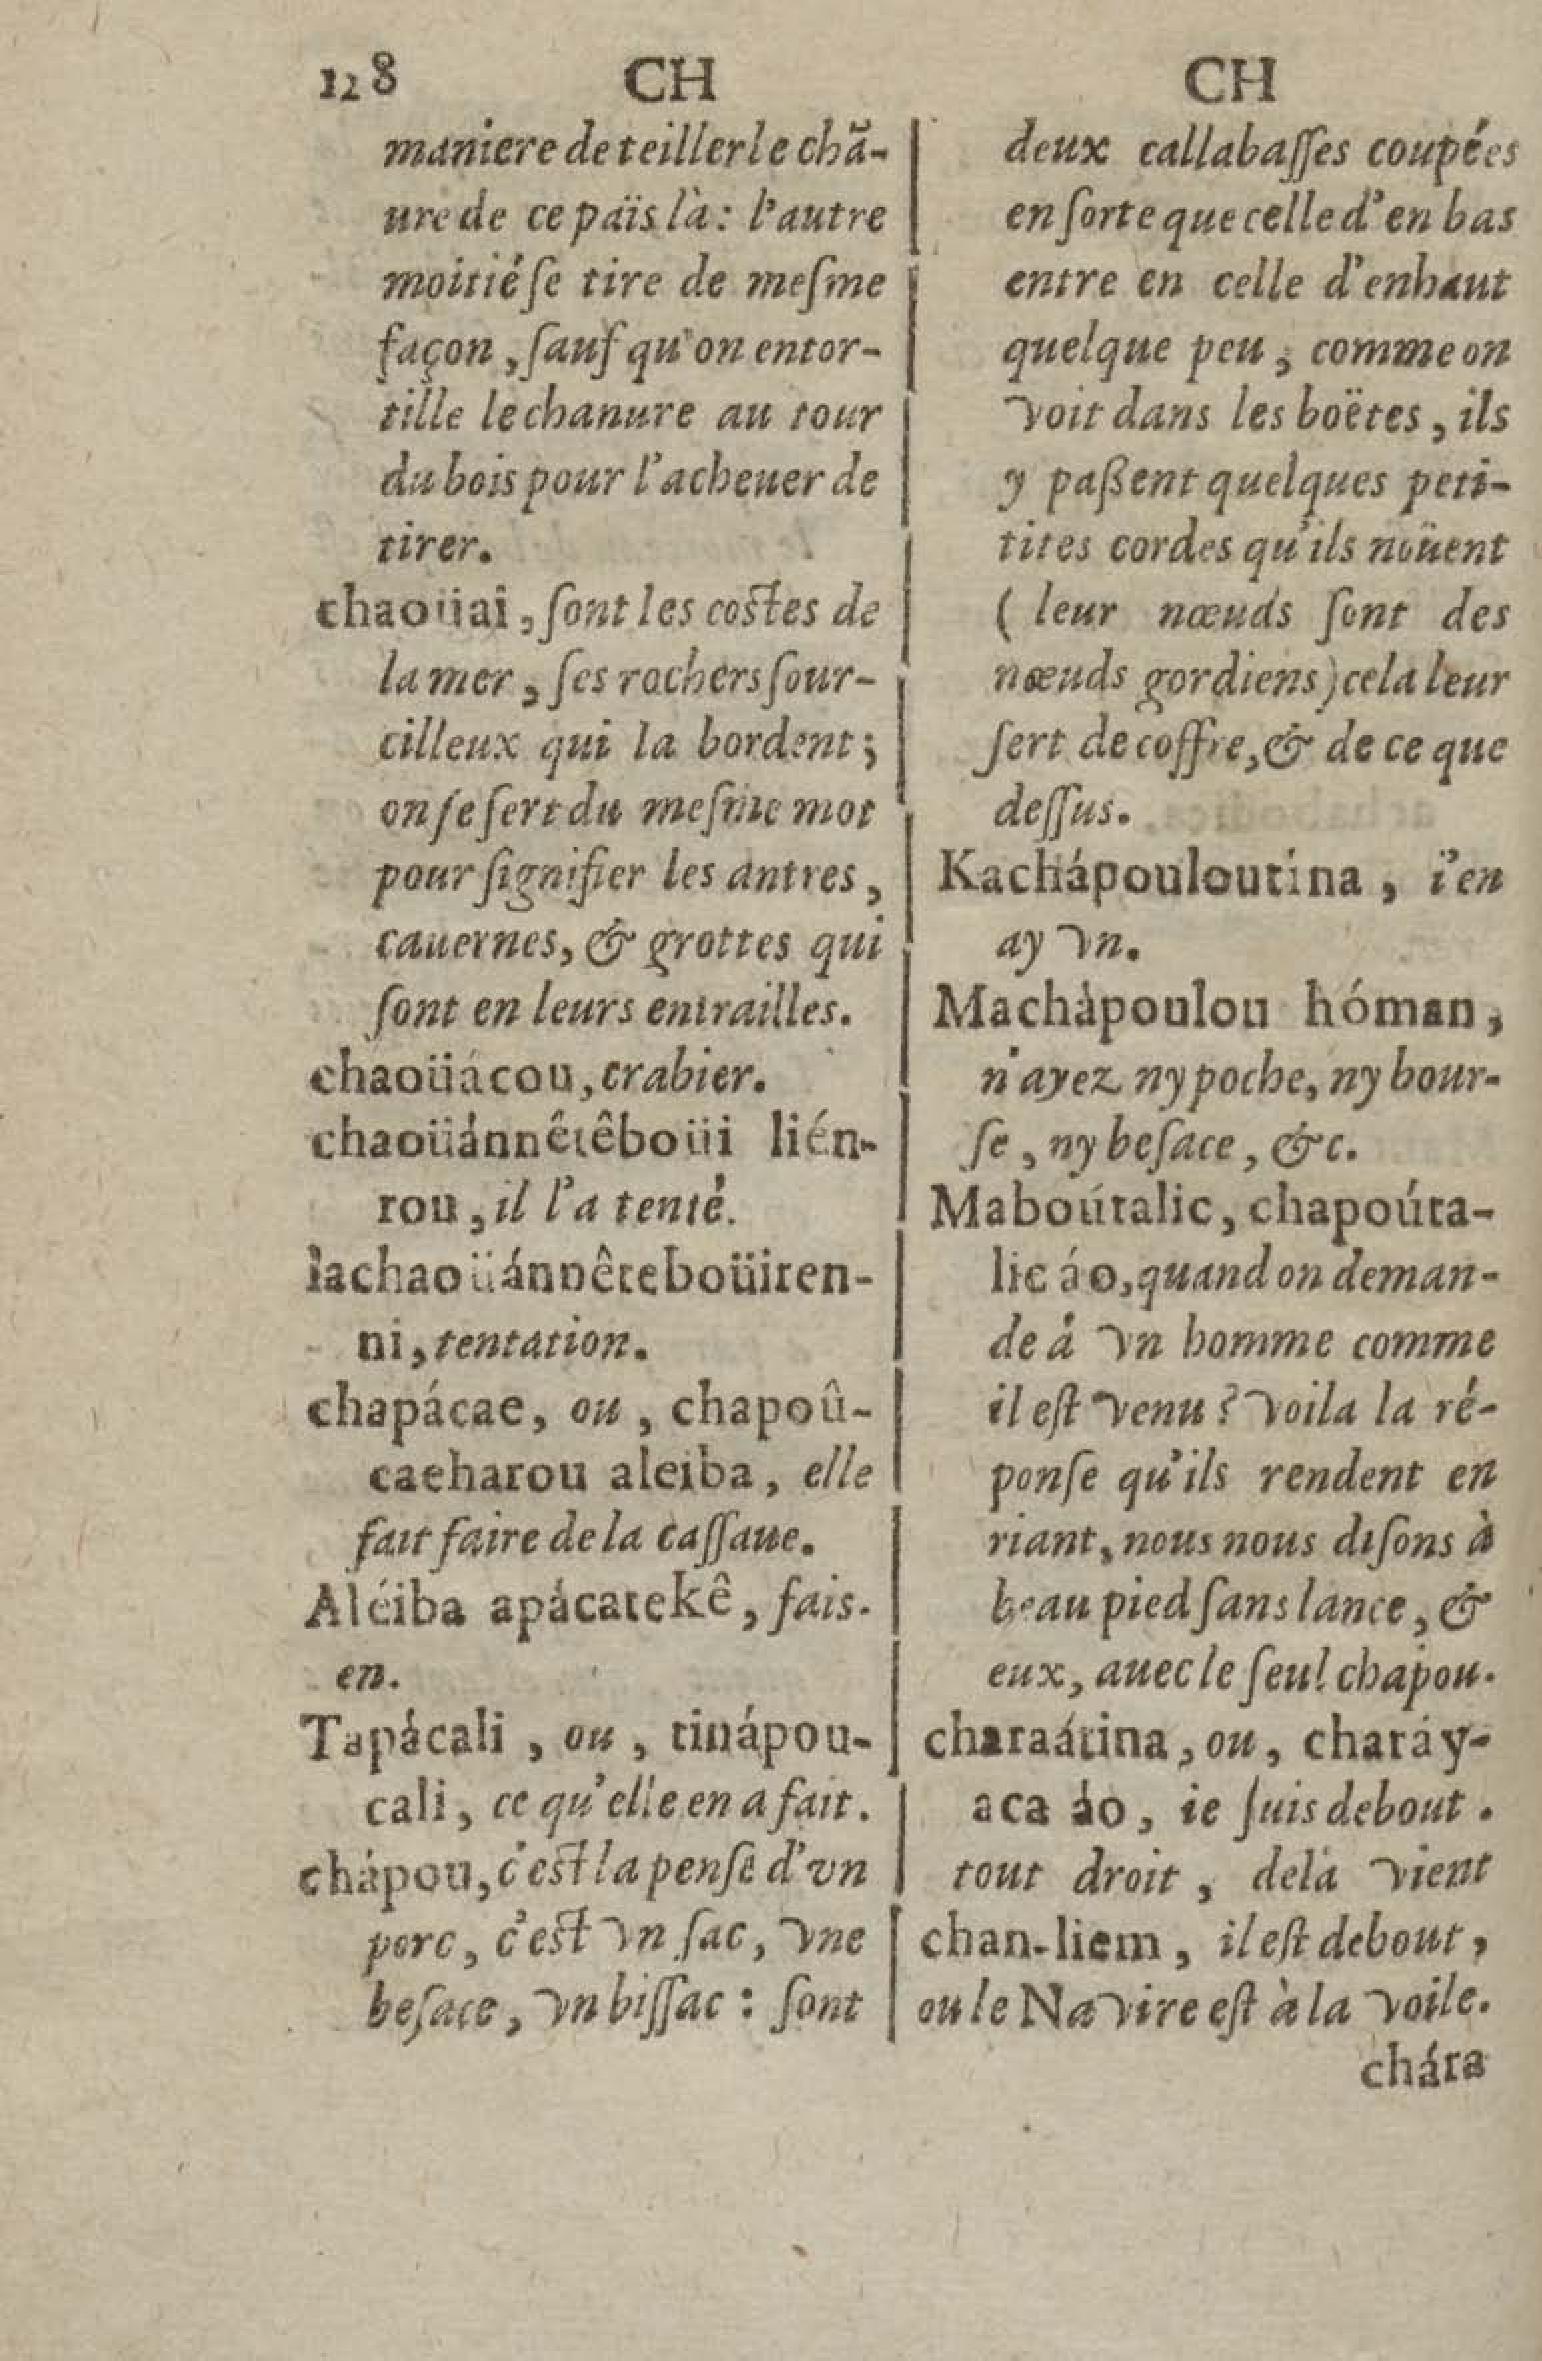 128 CH CH
maniere de teiller le chã-
ure de ce païs là: l'autre
moitié ſe tire de meſme
façon, ſauf qu'on entor-
tille le chanure au tour
du bois pour l'acheuer de
tirer.
chaoüai, ſont les coſtes de
la mer, ſes rochers ſour-
cilleux qui la bordent;
on ſe ſert du meſme mot
pour ſignifier les antres,
cauernes, & grottes qui
ſont en leurs entrailles.
chaoüácou, crabier.
chaoüánnêtêboüi lién-
rou, il l'a tenté.
lachaoüánnêteboüiten-
ni, tentation.
chapácae, ou, chapoû-
caeharou aleiba, elle
fait faire de la caſſaue.
Aléiba apácatekê, fais-
en.
Tapácali, ou, tinápou-
cali, ce qu'elle en a fait.
chápou, c'eſt la penſe d'vn
porc, c'eſt vn ſac, vne
beſace, vn biſſac: ſont
deux callabaſſes coupées
en ſorte que celle d'en bas
entre en celle d'enhaut
quelque peu, comme on
voit dans les boëtes, ils
y paßent quelques peti-
tites cordes qu'ils noüent
( leur nœuds ſont des
nœuds gordiens) cela leur
ſert de coffre, & de ce que
deſſus.
Kachápouloutína, i'en
ay vn.
Machápoulou hóman,
n'ayez ny poche, ny bour-
ſe, ny beſace, &c.
Maboútalic, chapoúta-
lic áo, quand on deman-
de à vn homme comme
il eſt venu? voila la ré-
ponſe qu'ils rendent en
riant, nous nous diſons à
beau pied ſans lance, &
eux, auec le ſeul chapou.
charaátina, ou, charáy-
aca áo, ie ſuis debout.
tout droit, delà vient
chan-liem, il eſt debout,
ou le Navire eſt à la voile.
chára